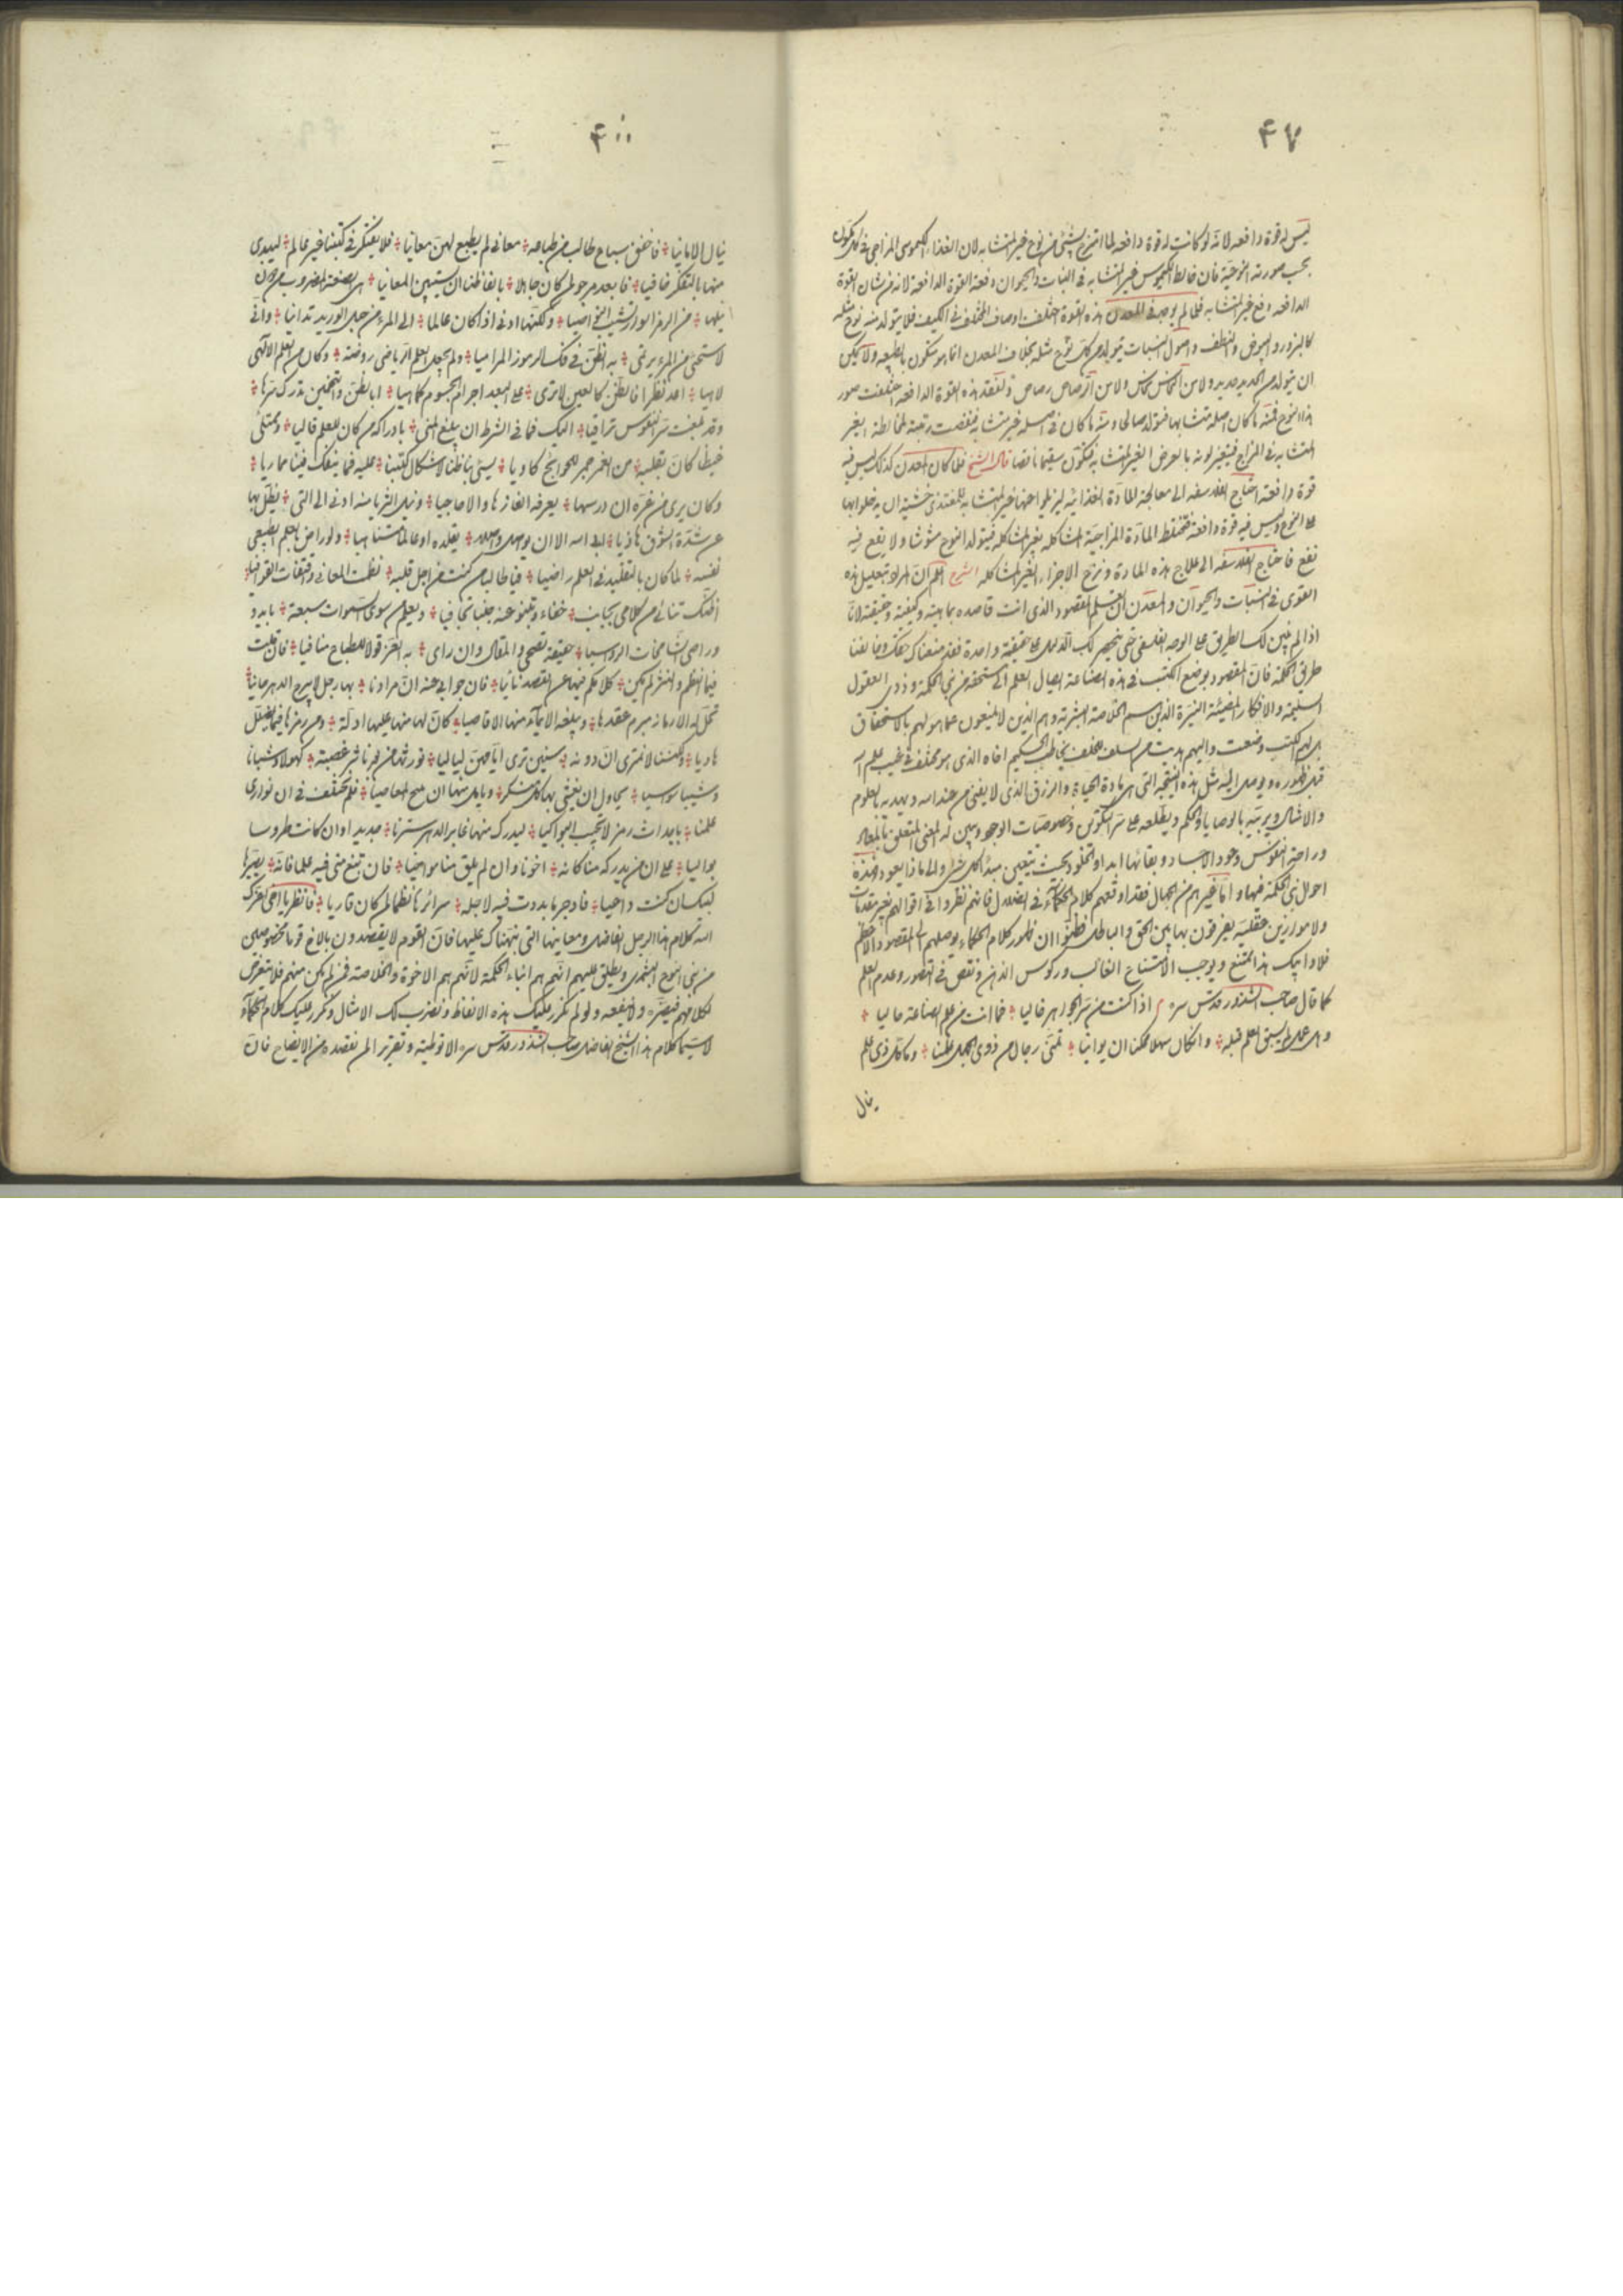 ۴۷
ليس له قوة دافعه لانه لو كانت له قوة دافعه لما امتزج بشئ من نوع غير المتشابه لان الغذاء الكيموسى المزاجى
بحسب صورته النوعية فان خالط الكيموس غير المتشابه فى النبات والحيوان دفعته القوة الدافعة لانه من شان القوة
الدافعه دفع غير المتشابه فلما لم يوجد فى المعدن هذه القوة اختلف اوصاف المختلف فى الكيف فلا يتولد منه نوع مثله
كالبزور والبيوض والنطف واصول النبات فيتولد من كل نوع مثله بخلاف المعدن انما هو متكون بالطبيعه ولا يمكن
ان يتولد من الحديد حديد ولا من النحاس نحاس ولا من الرصاص رصاص ولفقد هذه القوة الدافعه اختلفت صور
هذا النوع فمنه ما كان اصله متشابها فتولد صالحا ومنه ما كان فى اصله غير متشابه فنقصت رتبته لمخالطة الغير
المتشابه فى المزاج فيتغير لونه بالعرض الغير المتشابه فيتكون سقيما ناقصا قال الشيخ فلما كان المعدن كذلك ليس فيه
قوة دافعة احتاج الفلاسفه الى معالجة المادة الغذائيه ليزيلوا عنها غير المتشابه للمغتذى خشية ان يدخلوا بها
على النوع وليس فيه قوة دافعة فتختلط المادة المزاجية المشاكله بغير المشاكله فيتولد النوع مشوشا ولا يقع فيه
نفع فاحتاج الفلاسفه الى علاج هذه المادة ونزع الاجزاء الغير المشاكله الشرح اعلم ان المراد بتعليل هذه
القوى فى النبات والحيوان والمعدن ان تعلم المقصود الذى انت قاصده بماهيته وكيفيته وحقيقته لانا
اذا لم نبين لك الطريق على الوجه الفلسفى حتى ينحصر لك الدليل على حقيقة واحدة فقد منعناك حقك وخالفنا
طريق الحكمة فان المقصود بوضع الكتب فى هذه الصناعة ايصال العلم الى مستحقه من بنى الحكمة وذوى العقول
السليمة والافكار المضيئة النيرة الذين هم الخلاصة البشرية وهم الذين لا يمنعون عما هو لهم بالاستحقاق
بل لهم الكتب وضعت واليهم هديت من السلف للخلف يخاطب الحكيم اخاه الذى هو مختلف فى غيب علم الله
قبل ظهوره ويوصل اليه مثل هذه النتيجة التى هى مادة الحياة والرزق الذى لا يفنى من عند الله ويهديه بالعلوم
والامثال ويربيه بالوصايا والحكم ويطلعه على سر التكوين وخصوصيات الوجود ويبين له المعنى المتعلق بالمعاد
وراحة النفوس وعود الاجساد وبقائها ابدا والخلود بحيث يتعين مبدأ كل شئ والى ماذا يعود وهذه
احوال بنى الحكمة فيها واما غيرهم من الجهال فقد اوقعهم كلام الحكماء فى الضلال فانهم نظروا فى اقوالهم بغير مقدمات
ولا موازين عقلية يفرقون بها بين الحق والباطل فظنوا ان ظهور كلام الحكماء يوصلهم الى المقصود الاعظم
فلا وابيك هذا ممتنع ويوجب الامتناع الغالب وركوس الذهن ونقص فى التصور وعدم العلم
كما قال صاحب الشذور قدس سره اذا كنت من سر الجواهر خاليا ؞ فما انت من علم الصناعة حاليا ؞
وهل عمل لم يسبق العلم قبله ؞ وان كان سهلا ممكنا ان يواتيا ؞ تمنى رجال من ذوى الجهل علمنا ؞ وما كل ذى علم
ينال
۴۰۰
ينال الامانيا ؞ فاخفق سباع طالب من طباعه ؞ معانى لم يطبع لهن معانيا ؞ فلا يفتكر فى كتبنا غير عالم ؞ ليبدى
منها بالتفكر خافيا ؞ فابعد مرجو لمن كان جاهلا ؞ بالفاظنا ان يستبين المعانيا ؞
؞ من الرمز ؞ ولكنها ادنى اذا كان عالما ؞ الى المرء من حبل الوريد تدانيا ؞ وانى
لاستحيى من المرء يرتمى ؞ به الظن فى فك الرموز المراميا ؞ ولم يجعل العلم الرياضى روضه ؞ وكان من العلم الالهى
لاهيا ؞ اعد نظرا فالظن كالعين لا ترى ؞ على البعد اجرام الجسوم كما هيا ؞ ابالظن والتخمين تدرك سرها ؞
وقد بلغت سر النفوس تراقيا ؞ اليك فما فى الشرط ان يبلغ المنى ؞ بادراكه من كان للعلم قاليا ؞
؞ من الغمر جمر للحوانح كاويا ؞ يسئ بنا ظنا لاشكال كتبنا ؞ عليه فما ينفك فينا مماريا ؞
وكان يرى من غره ان درسها ؞ يعرفه الغازها والاحاجيا ؞ ونيل الثريا منه ادنى الى التى ؞ يظل بها
عن شدة الشوق هاذيا ؞ ابى الله الا ان ؞ يقلده او عالما متناهيا ؞ ولو راض بالعلم الطبيعى
نفسه ؞ لما كان بالتقليد فى العلم راضيا ؞ فيا طالبا من كنت من اجل قلبه ؞ نظمت المعانى وقفيت القوافيا
اظنك تنائى من كلامى بجانب ؞ خفاء وتنبو عنه جنبا تجافيا ؞ ويعلم من سوى السموات سبعة ؞ بايد و
وارسى الشامخات الرواسيا ؞ حقيقة نصحى والمقال وان راى ؞ به الغمر قولا للطباع منافيا ؞ فان قلت
فيها النظم والنثر لم يكن ؞ كلامكم فيها عن القصد نائيا ؞ فان جوابى عنه ان مرادنا ؞ بها رجل لا يبرح الدهر عانيا
تحل له الازمانه مبرم عقدها ؞ ويبلغه الايماء منها الاقاصيا ؞ كان لها منها عليها ادلة ؞ ومن رمزها فيما يضلل
هاديا ؞ ولكننا لا نمترى ان دونه ؞ سنين ترى ايامهن لياليا ؞ ؞ كهولا وشبانا
وشيبا نواسيا ؞ يحاول ان يفنى بها كل منكر ؞ ؞ فلم نختلف فى ان نوارى
علمنا ؞ باحداث رمز لا يجيب المواكبا ؞ ليدرك منها غابر الدهر سترنا ؞ جديدا وان كانت طروسا
بواليا ؞ على ان من يدركه منا كانه ؞ اخونا وان لم يلق منا مواخيا ؞ فان تبغ منى فيه علما فانه ؞
لبيك ان كنت واعيا ؞ فادجر ما بدوت فيه لاهله ؞ سرائرنا نظما لمن كان قاريا ؞ فانظر يا اخى اعزك
الله كلام هذا الرجل الفاضل ومعاينها التى نبهناك عليها فان القوم لا يقصدون بالاخ قوما مخصوصين
من بنى النوع البشرى ويطلق عليهم انهم هم ابناء الحكمة لانهم هم الاخوة والخلاصة فمن لم يكن منهم فلا يتعرض
لكلامهم فيضره ولا ينفعه ولو لم نكرر عليك هذه الالفاظ ونضرب لك الامثال ونكرر عليك كلام الحكماء
لا سيما كلام هذا الشيخ الفاضل صاحب الشذور قدس سره الا توطئة وتقرير الما نقصده من الايضاح فان